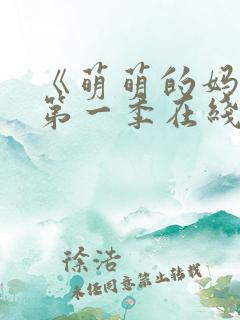 《萌萌的妈
第一季在线
徐浩
未经同意禁止转载